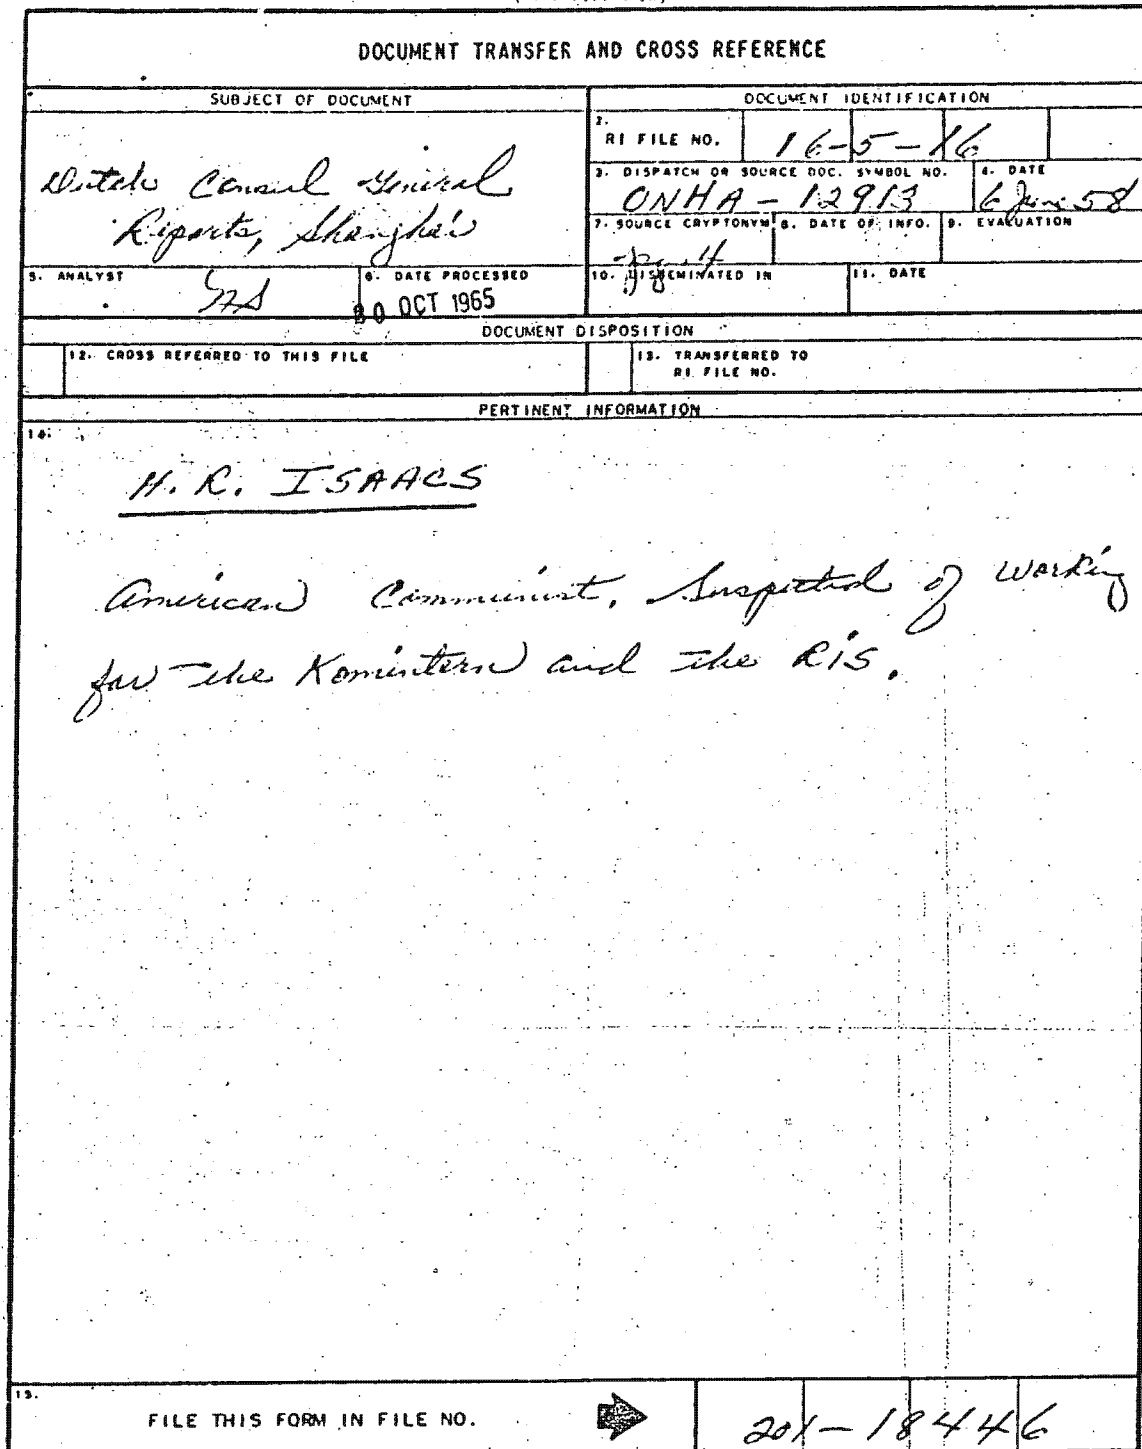 DOCUMENT TRANSFER AND CROSS REFERENCE
SUBJECT OF DOCUMENT
Dutch Consul General
Reports, Shanghai
5. ANALYST
6. DATE PROCESSED
20 OCT 1965
DOCUMENT IDENTIFICATION
2.
RI FILE NO.
16-5-16
3. DISPATCH OR SOURCE DOC. SYMBOL NO.
ONHA - 12913
4. DATE
6 June 58
7. SOURCE CRYPTONYM
8. DATE OF INFO.
9. EVALUATION
pg. 4
10. DISSEMINATED IN
11. DATE
DOCUMENT DISPOSITION
12. CROSS REFERRED TO THIS FILE
13. TRANSFERRED TO
RI FILE NO.
PERTINENT INFORMATION
14.
H. R. ISAACS
American Communist, Suspected of working
for the Komintern and the RIS.
15.
FILE THIS FORM IN FILE NO.
201-18446